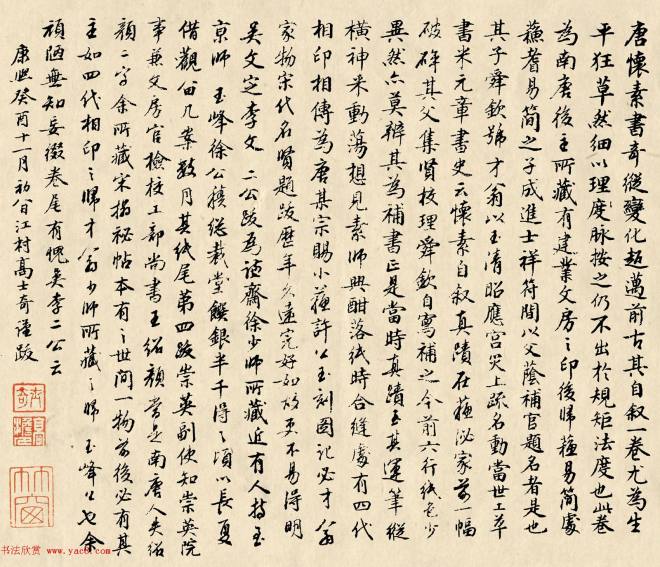 唐懷素書奇縱變化超邁前古其自叙一卷尤為生
平狂草然細以理度脉按之仍不出於規矩法度也此卷
為南唐後主所藏有建業文房之印後歸蘇易簡處
蘓耆易簡之子成進士祥符間以父蔭補官題名者是也
其子舜欽號才翁以玉清昭應宫灾上疏名動當世工草
書米元章書史云懷素自叙真蹟在蘓泌家前一幅
破碎其父集賢校理舜欽自寫補之今前六行紙色少
異然亦莫辨其為補書正是當時真蹟至其運筆縱
横神采動蕩想見素師興酣落紙時合縫處有四代
相印相傳為唐某宗賜小蘓許公玉刻圖記必才翁
家物宋代名賢題跋歷年久遠完好如故更不易得明
吳文定李文 二公跋為謙齋徐少師所藏近有人持至
京師 玉峰徐公積總裁堂饌銀半千得之頃以長夏
借觀留几案數月其紙尾第四跋崇英副使知崇英院
事兼文房官檢校工部尚書王紹顔當是南唐人失紹
顔二字余所藏宋搨祕帖本有之世間一物前後必有其
主如四代相印之歸才翁少師所藏之歸 玉峰公也余
頑陋無知妄綴卷尾有愧吳李二公云
康熙癸酉十一月初八日江村高士奇謹跋
士奇
高
竹窗
书法欣赏 www.yac8.com